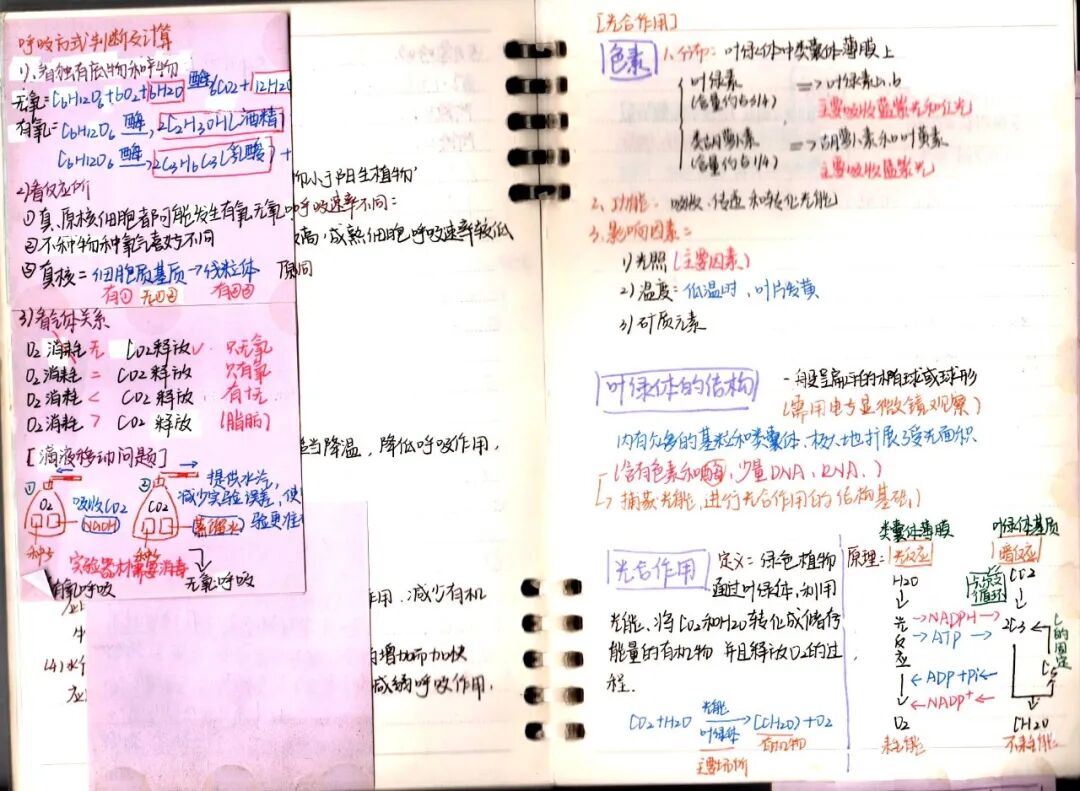 呼吸方式判断及计算
1)、看独有底物和产物
无氧=C6H12O6+6O2+6H2O 酶 6CO2+12H2O
有氧=C6H12O6 酶, 2C2H5OH(酒精)
C6H12O6 酶, 2C3H6C3(乳酸) +
2)看反应所
①真、原核细胞都可能发生有氧无氧
②不种物种氧气喜好不同
③真核=细胞质基质→线粒体
有① 无①② 有②③
3)看气体关系
O2消耗 无 CO2释放✓ 只无氧
O2消耗 = CO2释放 只有氧
O2消耗 < CO2释放
O2消耗 > CO2释放 (脂肪)
[滴液移动问题]
① O2 吸收CO2 NAOH 种子
② CO2 蒸馏水 种子
提供水汽,
减少实验误差,使
验更准
实验器材需要消毒
有氧呼吸
无氧呼吸
物小于阳生植物'
呼吸速率不同:
高,成熟细胞呼吸速率较低
原同
当降温,降低呼吸作用,
作用.减少有机
(4)水
增加而加快
减弱呼吸作用,
[光合作用]
色素 1、分布: 叶绿体中类囊体薄膜上
叶绿素 => 叶绿素a、b
(含量约占3/4) 主要吸收蓝紫光和红光
类胡萝卜素 => 胡萝卜素和叶黄素
(含量约占1/4) 主要吸收蓝紫光
2、功能: 吸收、传递和转化光能
3、影响因素=
1)光照(主要因素)
2)温度: 低温时、叶片发黄
3)矿质元素
叶绿体的结构 一般呈扁平的椭球或球形
(需用电子显微镜观察)
内有众多的基粒和类囊体、极大地扩展了受光面积
(含有色素和酶,少量DNA、RNA、)
↳捕获光能,进行光合作用的结构基础)
光合作用 定义=绿色植物
通过叶绿体、利用
光能、将CO2和H2O转化成储存
能量的有机物 并且释放O2的过
程.
CO2+H2O 光能 叶绿体 → (CH2O)+O2
主要场所 有机物
类囊体薄膜 叶绿体基质
原理: 光反应 暗反应
H2O 卡尔文循环 CO2
光反应 →NADPH→ 2C3 C的固定
→ATP→
←ADP+Pi← C5
←NADP+←
O2 CH2O